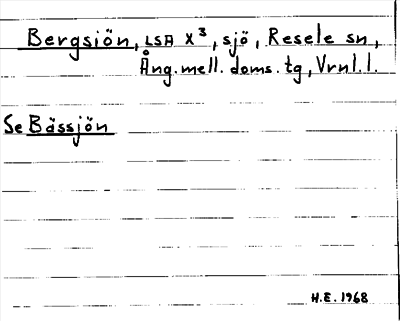 Bergsjön, LSA X³, sjö, Resele sn,
Ång. mell. doms. tg, Vrnl. l.
Se Bässjön
H.E. 1968